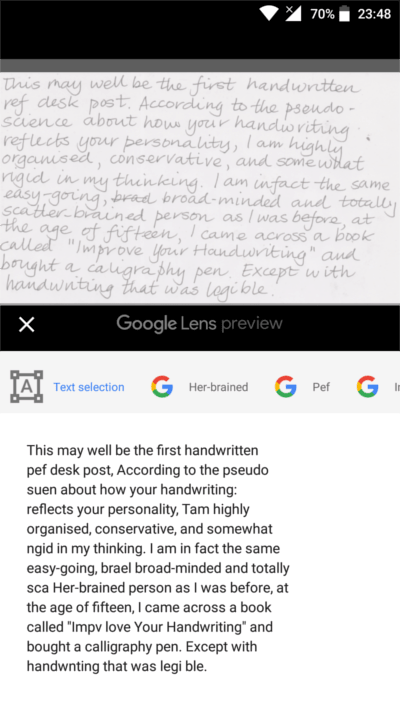 70% 23:48
This may well be the first handwritten
ref desk post. According to the pseudo-
science about how your handwriting
reflects your personality, I am highly
organised, conservative, and somewhat
rigid in my thinking. I am infact the same
easy-going, brad broad-minded and totally
scatter-brained person as I was before, at
the age of fifteen, I came across a book
called "Improve Your Handwriting" and
bought a caligraphy pen. Except with
handwriting that was legible.
Google Lens preview
A Text selection Her-brained Pef
This may well be the first handwritten
pef desk post, According to the pseudo
suen about how your handwriting:
reflects your personality, Tam highly
organised, conservative, and somewhat
ngid in my thinking. I am in fact the same
easy-going, brael broad-minded and totally
sca Her-brained person as I was before, at
the age of fifteen, I came across a book
called "Impv love Your Handwriting" and
bought a calligraphy pen. Except with
handwnting that was legi ble.